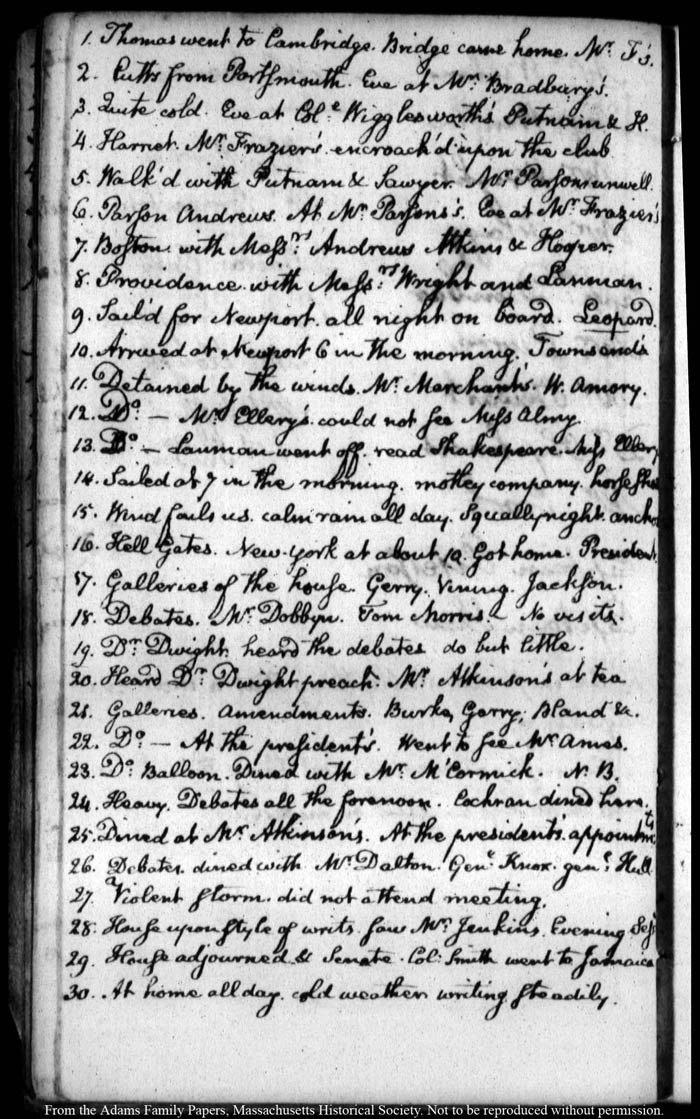 1. Thomas went to Cambridge. Bridge came home. Mr. T's.
2. Cutts from Portsmouth. Eve at Mr. Bradbury's.
3. Quite cold. Eve at Coll. Wigglesworth's Putnam & H.
4. Harriet. Mr. Frazier's. encroach'd upon the club
5. Walk'd with Putnam & Sawyer. Mr. Parsons unwell.
6. Parson Andrews. At Mr. Parsons's. Eve at Mr. Frazier's
7. Boston. with Messrs. Andrews Atkins & Hooper.
8. Providence. with Messrs. Wright and Lanman.
9. Sail'd for Newport. all night on board. Leopard.
10. Arrived at Newport 6 in the morning. Townsend's
11. Detained by the winds. Mr. Marchant's. W. Amory.
12. Do. — Mr. Ellery's. could not see Miss Almy.
13. Do. — Lanman went off. read Shakespeare. Miss Ellery
14. Sailed at 7 in the morning. motley company. horse
15. Wind fails us. calm rain all day. Squally night.
16. Hell Gates. New-York at about 10. Got home. President
17. Galleries of the house. Gerry. Vining. Jackson.
18. Debates. Mr. Dobbyn. Tom Morris. — No visits.
19. Dr. Dwight. heard the debates. do but little.
20. Heard Dr. Dwight preach. Mr. Atkinson's at tea
21. Galleries. Amendments. Burke, Gerry, Bland &c.
22. Do. — At the president's. Went to see Mr. Ames.
23. Do. Balloon. Dined with Mr. McCormick. N. B.
24. Heavy. Debates all the forenoon. Cochran dined here.
25. Dined at Mr. Atkinson's. At the president's. appointmts
26. Debates. dined with Mr. Dalton. Genl. Knox. genl. Hull
27. Violent storm. did not attend meeting.
28. House upon style of writs. saw Mr. Jenkins. Evening Sess
29. House adjourned & Senate. Col: Smith went to Jamaica
30. At home all day. cold weather. writing steadily.
From the Adams Family Papers, Massachusetts Historical Society. Not to be reproduced without permission.